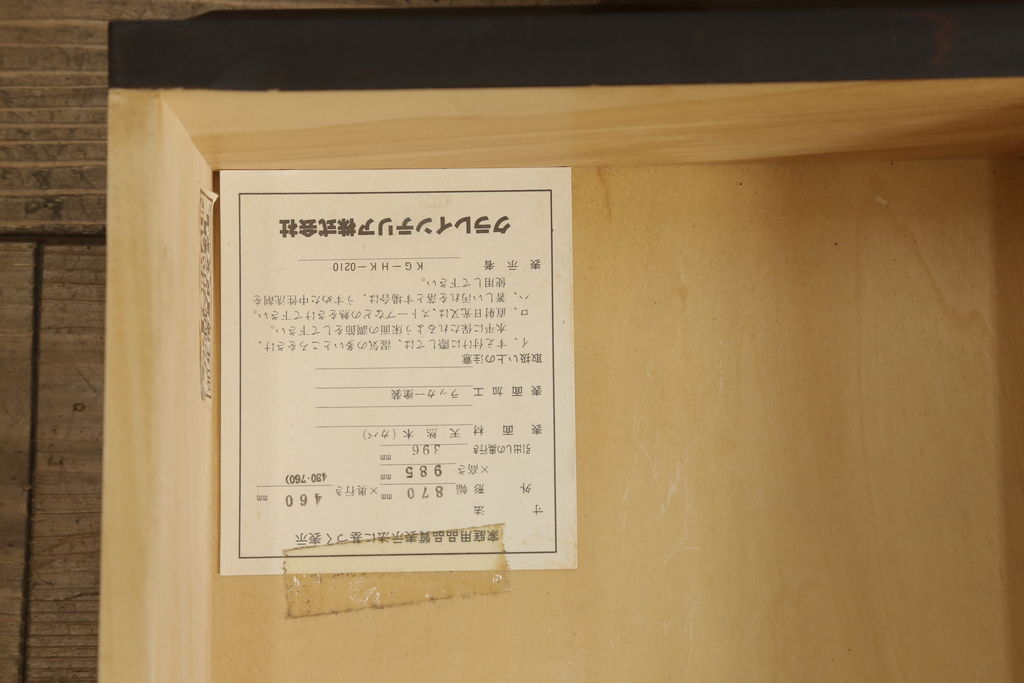 家庭用品品質表示法に基づく表示
寸法
外形 幅 870 mm ×奥行き 460 mm
×高さ 985 mm (430·760)
引出しの奥行き 396 mm
表面材 天然木(カバ)
表面加工 ラッカー塗装
取扱い上の注意
イ、すえ付けに際しては、湿気の多いところをさけ、
水平に保たれるよう床面の調節をして下さい。
ロ、直射日光又は、ストーブなどの熱をさけて下さい。
ハ、著しい汚れを落とす場合は、うすめた中性洗剤を
使用して下さい。
表示者 KG-HK-0210
クラレインテリア株式会社